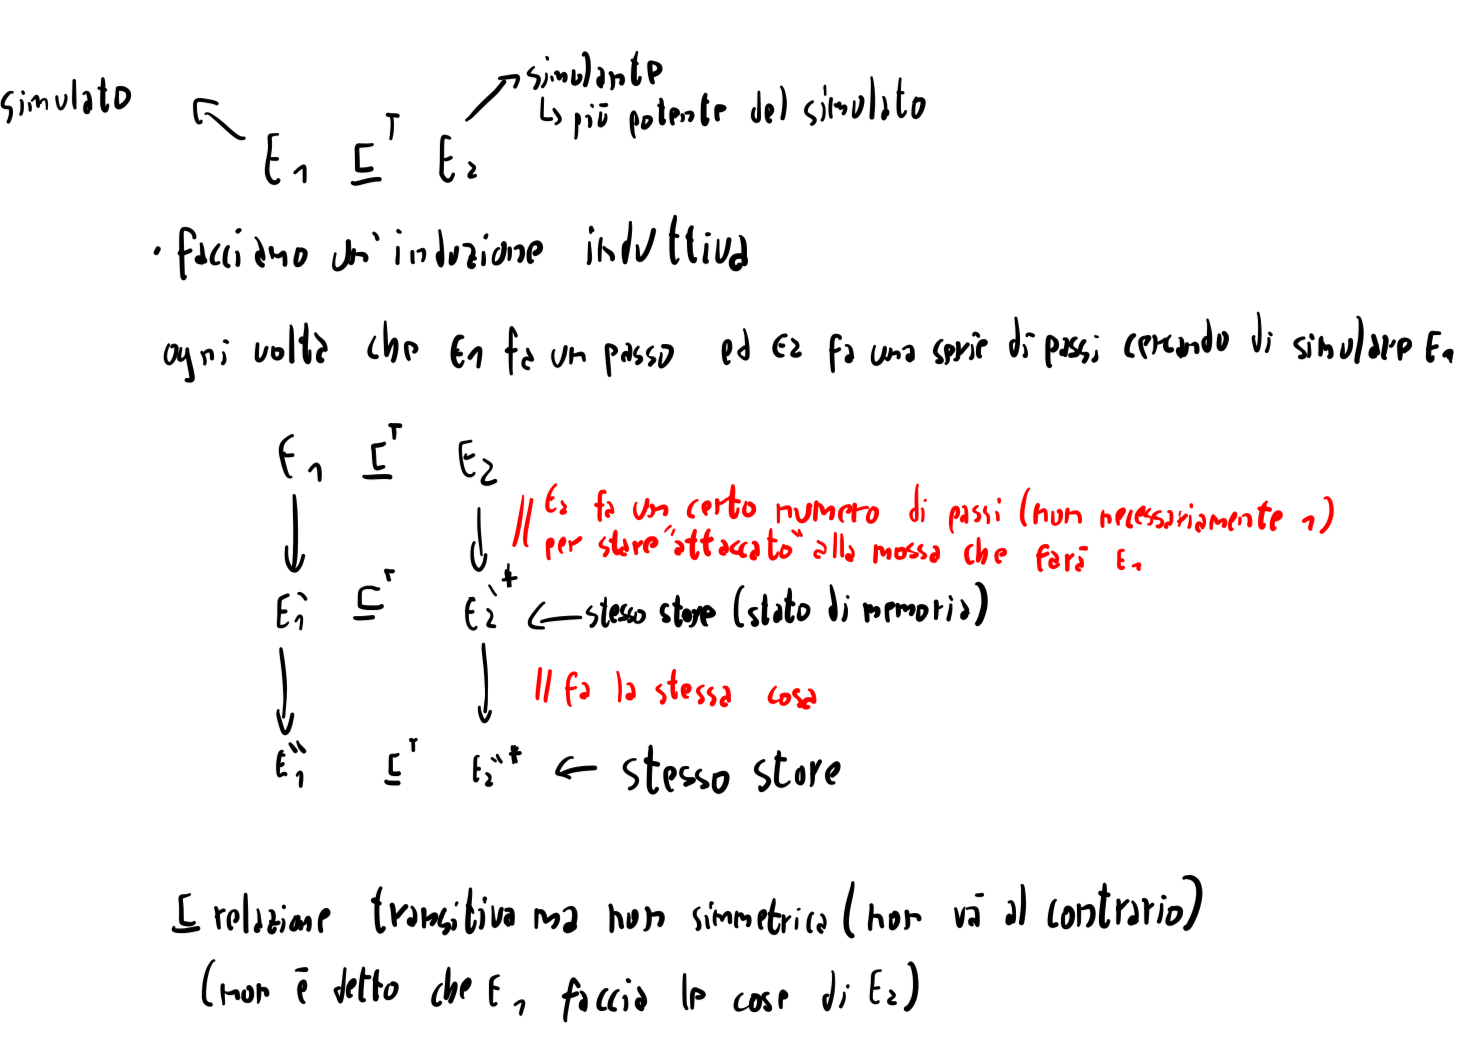 simulante
simulato
↳ più potente del simulato
E₁ ⊑ᵀ E₂
· facciamo un'induzione induttiva
ogni volta che E₁ fa un passo ed E₂ fa una serie di passi cercando di simulare E₁
E₁ ⊑ᵀ E₂
// E₂ fa un certo numero di passi (non necessariamente 1)
per stare "attaccato" alla mossa che farà E₁
E₁' ⊑ᵀ E₂'* ← stesso store (stato di memoria)
// fa la stessa cosa
E₁'' ⊑ᵀ E₂''* ← stesso store
⊑ relazione transitiva ma non simmetrica (non va al contrario)
(non è detto che E₁ faccia le cose di E₂)